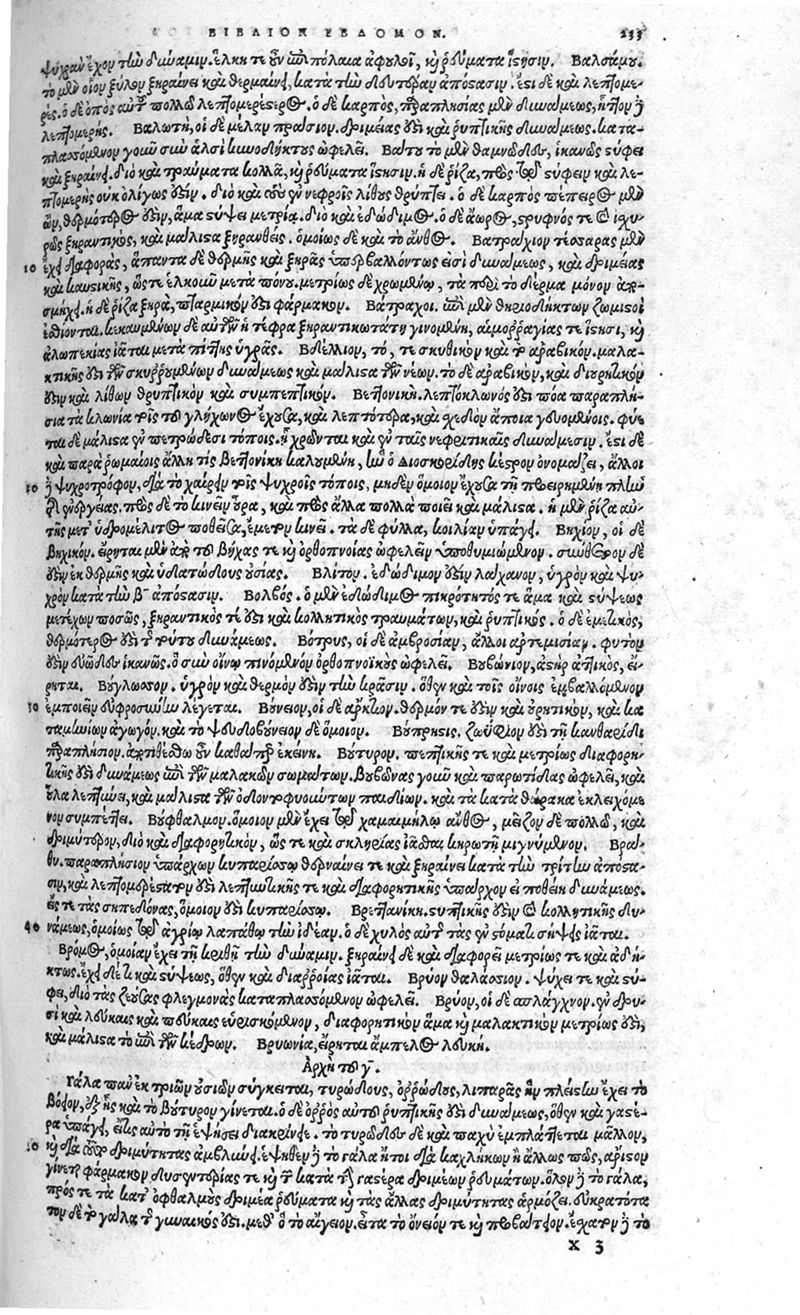 ΒΙΒΛΙΟΝ ΕΒΔΟΜΟΝ. 233
ψύχραν ἔχον τὴν δύναμιν. ἕλκη τε οὖν ἐπιπόλαια ἀφουλοῖ, καὶ ῥεύματα ἵησιν. Βαλσάμου.
τὸ μὲν οἷον ξύλον ξηραίνει καὶ θερμαίνει, κατὰ τὴν δευτέραν ἀπόστασιν. ἔστι δὲ καὶ λεπτομε-
ρές. ὁ δὲ ὀπὸς αὐτοῦ πολλῷ λεπτομερέστερος. ὁ δὲ καρπὸς, παραπλησίας μὲν δυνάμεως, ἧττον δὲ
λεπτομερής. Βαλωτὴ, οἱ δὲ μέλαν πράσιον. δριμείας ἐστὶ καὶ ῥυπτικῆς δυνάμεως. κατα-
πλασσόμενον γοῦν σὺν ἁλσὶ κυνοδήκτους ὠφελεῖ. Βάτου τὸ μὲν θαμνῶδες, ἱκανῶς στύφει
καὶ ξηραίνει. διὸ καὶ τραύματα κολλᾷ, καὶ ῥεύματα ἵστησιν. ἡ δὲ ῥίζα, πρὸς τῷ στύφειν καὶ λε-
πτομερὴς οὐκ ὀλίγως ἐστίν. διὸ καὶ τοὺς ἐν νεφροῖς λίθους θρύπτει. ὁ δὲ καρπὸς πέπειρος μὲν
ὢν, θερμότερός ἐστιν, ἅμα στύψει μετρίᾳ. διὸ καὶ ἐδώδιμος. ὁ δὲ ἄωρος, στρυφνός τε καὶ ἰσχυ-
ρῶς ξηραντικὸς, καὶ μάλιστα ξηρανθείς. ὁμοίως δὲ καὶ τὸ ἄνθος. Βατράχιον τέσσαρας μὲν
10 ἔχει διαφορὰς, ἅπαντα δὲ θερμῆς καὶ ξηρᾶς ὑπερβαλλόντως εἰσὶ δυνάμεως, καὶ δριμείας
καὶ καυστικῆς, ὥστε ἑλκοῦν μετὰ πόνου. μετρίως δὲ χρωμένων, τὰ περὶ τὸ δέρμα μόνον ἀπο-
σμήχει. ἡ δὲ ῥίζα ξηρὰ, πταρμικόν ἐστι φάρμακον. Βάτραχοι. ἐπὶ μὲν θηριοδήκτων ζωμιστοὶ
ἐσθίονται. κεκαυμένων δὲ αὐτῶν ἡ τέφρα ξηραντικωτάτη γινομένη, αἱμορραγίας τε ἵστησι, καὶ
ἀλωπεκίας ἰᾶται μετὰ πίττης ὑγρᾶς. Βδέλλιον, τό, τε σκυθικὸν καὶ τὸ ἀραβικόν. μαλα-
κτικῆς ἐστὶ τῶν σκιρρουμένων δυνάμεως καὶ μάλιστα τῶν νέων. τὸ δὲ ἀραβικὸν, καὶ διουρητικόν
ἐστιν καὶ λίθων θρυπτικὸν καὶ συμπεπτικόν. Βετονική. λεπτόκλωνός ἐστι πόα παραπλή-
σια τὰ κλωνία τοῖς τοῦ γλήχωνος ἔχουσα, καὶ λεπτότερα, καὶ σχεδὸν ἄποια γευομένοις. φύε-
ται δὲ μάλιστα ἐν πετρώδεσι τόποις. ᾗ χρῶνται καὶ ἐν ταῖς νεφριτικαῖς δυνάμεσιν. ἔστι δὲ
καὶ παρὰ ῥωμαίοις ἄλλη τις βετονίκη καλουμένη, ἣν ὁ Διοσκορίδης κέστρον ὀνομάζει, ἄλλοι
20 δὲ ψυχρότροφον, διὰ τὸ χαίρειν τοῖς ψυχροῖς τόποις, μηδὲν ὅμοιον ἔχουσα τῇ προειρημένῃ πλὴν
τῆς ἐνεργείας. πρὸς δὲ τὸ κινεῖν οὖρα, καὶ πρὸς ἄλλα πολλὰ ποιεῖ καὶ μάλιστα. ἡ μὲν ῥίζα αὐ-
τῆς μεθ' ὑδρομέλιτος ποθεῖσα, ἔμετον κινεῖ. τὰ δὲ φύλλα, κοιλίαν ὑπάγει. Βηχίον, οἱ δὲ
βηχικόν. εἴρηται μὲν ἀπὸ τοῦ βῆχας τε καὶ ὀρθοπνοίας ὠφελεῖν ὑποθυμιώμενον. σύνθετον δέ
ἐστιν ἐκ θερμῆς καὶ ὑδατώδους οὐσίας. Βλίτον. ἐδώδιμόν ἐστιν λάχανον, ὑγρὸν καὶ ψυ-
χρὸν κατὰ τὴν β ἀπόστασιν. Βολβός. ὁ μὲν ἐδώδιμος πικρότητός τε ἅμα καὶ στύψεως
μετέχων ποσῶς, ξηραντικός τέ ἐστι καὶ κολλητικὸς τραυμάτων, καὶ ῥυπτικός. ὁ δὲ ἐμετικὸς,
θερμότερός ἐστι τῆς τούτου δυνάμεως. Βότρυς, οἱ δὲ ἀμβροσίαν, ἄλλοι ἀρτεμισίαν. φυτόν
ἐστιν εὐῶδες ἱκανῶς. ὃ σὺν οἴνῳ πινόμενον ὀρθοπνοϊκοὺς ὠφελεῖ. Βουβώνιον, ἀστὴρ ἀττικὸς, εἴ-
ρηται. Βούγλωσσον. ὑγρὸν καὶ θερμόν ἐστιν τὴν κρᾶσιν. ὅθεν καὶ τοῖς οἴνοις ἐμβαλλόμενον
30 ἐμποιεῖν εὐφροσύνην λέγεται. Βούνειον, οἱ δὲ ἄρκτιον. θερμόν τέ ἐστιν καὶ οὐρητικὸν, καὶ κα
ταμηνίων ἀγωγόν. καὶ τὸ ψευδοβούνειον δὲ ὅμοιον. Βούπρηστις. ζωΰφιόν ἐστι τῇ κανθαρίδι
παραπλήσιον. ἀποτιθέσθω οὖν καθάπερ ἐκείνη. Βούτυρον. πεπτικῆς τε καὶ μετρίως διαφορη-
τικῆς ἐστὶ δυνάμεως ἐπὶ τῶν μαλακῶν σωμάτων. βουβῶνας γοῦν καὶ παρωτίδας ὠφελεῖ, καὶ
οὖλα λεπτύνει, καὶ μάλιστα τῶν ὀδοντοφυούντων παιδίων. καὶ τὰ κατὰ θώρακα ἐκλειχόμε
νον συμπέττει. Βούφθαλμον. ὅμοιον μὲν ἔχει τῷ χαμαιμήλῳ ἄνθος, μεῖζον δὲ πολλῷ, καὶ
δριμύτερον, διὸ καὶ διαφορητικὸν, ὥς τε καὶ σκληρίας ἰᾶσθαι κηρωτῇ μιγνύμενον. Βρά-
θυ. παραπλήσιον ὑπάρχων κυπαρίσσῳ θερμαίνει τε καὶ ξηραίνει κατὰ τὴν τρίτην ἀπόστα-
σιν, καὶ λεπτομερέστατόν ἐστι λεπτυντικῆς τε καὶ διαφορητικῆς ὑπάρχον εἰ ποθείη δυνάμεως.
εἴς τε τὰς σηπεδόνας, ὅμοιόν ἐστι κυπαρίσσῳ. Βρεττανική. στυπτικῆς ἐστὶν καὶ κολλητικῆς δυ-
40 νάμεως, ὁμοίως τῷ ἀγρίῳ λαπάθῳ τὴν ἰδέαν. ὁ δὲ χυλὸς αὐτοῦ τὰς ἐν στόματι σήψεις ἰᾶται.
Βρόμος, ὁμοίαν ἔχει τῇ κριθῇ τὴν δύναμιν. ξηραίνει δὲ καὶ διαφορεῖ μετρίως τε καὶ ἀδή-
κτως. ἔχει δέ τι καὶ στύψεως, ὅθεν καὶ διαρροίας ἰᾶται. Βρύον θαλάσσιον. ψύχει τε καὶ στύ-
φει, διὸ τὰς ζεούσας φλεγμονὰς καταπλασσόμενον ὠφελεῖ. Βρύον, οἱ δὲ σπλάγχνον. ἐν δρυ-
σὶ καὶ λεύκαις καὶ πεύκαις εὑρισκόμενον, διαφορητικὸν ἅμα καὶ μαλακτικὸν μετρίως ἐστὶ,
καὶ μάλιστα τὸ ἐπὶ τῶν κέδρων. Βρυωνία, εἴρηται ἄμπελος λευκή.
Ἀρχὴ τοῦ γ.
Γάλα πᾶν ἐκ τριῶν οὐσιῶν σύγκειται, τυρώδους, ὀρρώδους, λιπαρᾶς ἣν πλείστην ἔχει τὸ
βόειον, ἐξ ἧς καὶ τὸ βούτυρον γίνεται. ὁ δὲ ὀρρὸς αὐτοῦ ῥυπτικῆς ἐστὶ δυνάμεως, ὅθεν καὶ γαστέ-
ρα ὑπάγει, εἴ τις αὐτὸ τῇ ἑψήσει διακρίνει. τὸ τυρῶδες δὲ καὶ παχὺ ἐμπλάττεται μᾶλλον,
50 καὶ διὰ τοῦτο δριμύτητας ἀμβλύνει. ἑψηθὲν δὲ τὸ γάλα ἤτοι διὰ καχλήκων ἢ ἄλλως πως, ἄριστον
γίνεται φάρμακον δυσεντερίας τε καὶ τῶν κατὰ τὴν γαστέρα δριμέων ῥευμάτων. ὅλον δὲ τὸ γάλα,
πρός τε τὰ κατ' ὀφθαλμοὺς δριμέα ῥεύματα καὶ τὰς ἄλλας δριμύτητας ἁρμόζει. εὐκρατότα
τον δὲ τὸ γάλα τῆς γυναικός ἐστι. μεθ' ὃ τὸ αἴγειον. εἶτα τὸ ὄνειόν τε καὶ προβάτειον. ἔσχατον δὲ τὸ
X 3